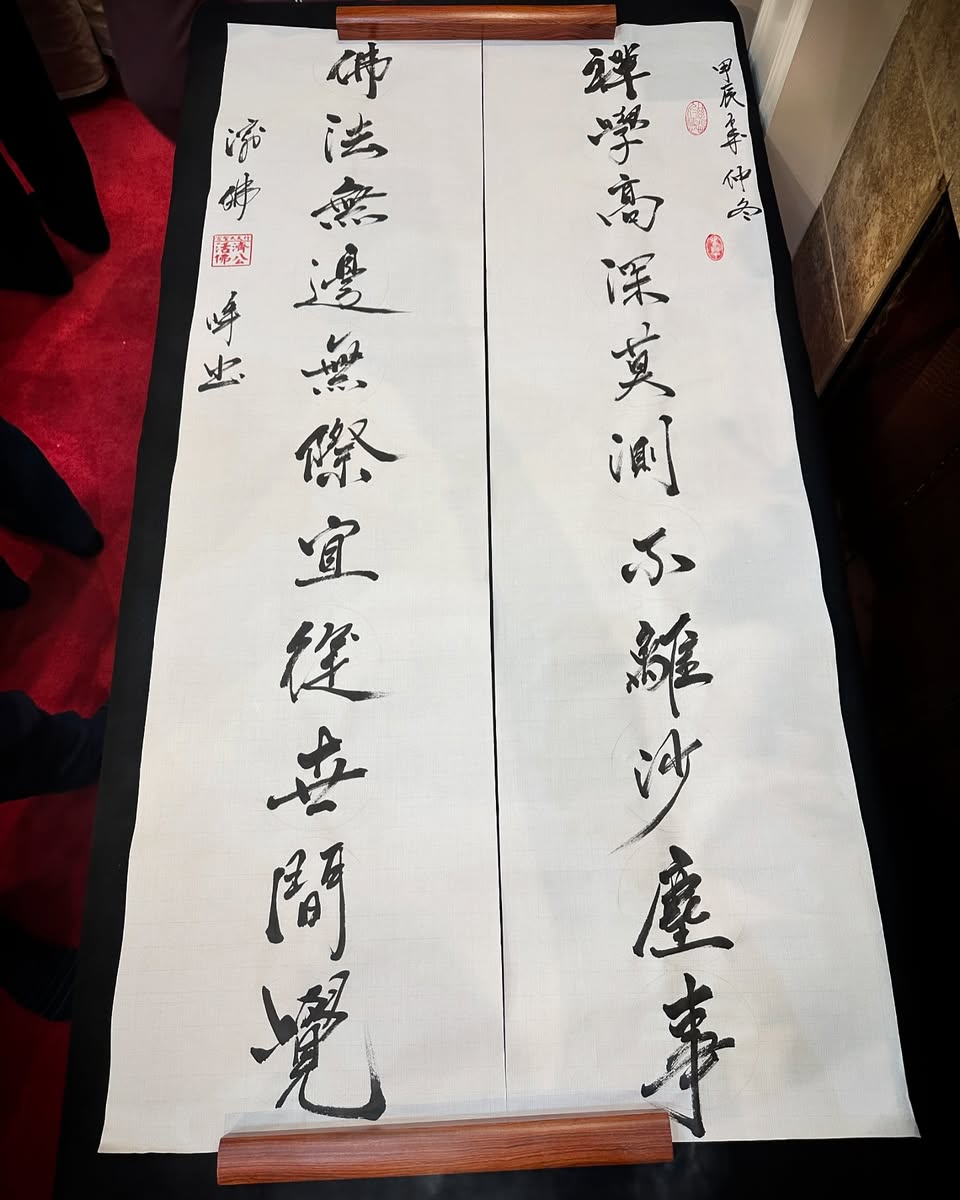 甲辰年仲冬
禪學高深莫測不離沙塵事
佛法無邊無際宜從世間覺
濟佛
濟公
活佛